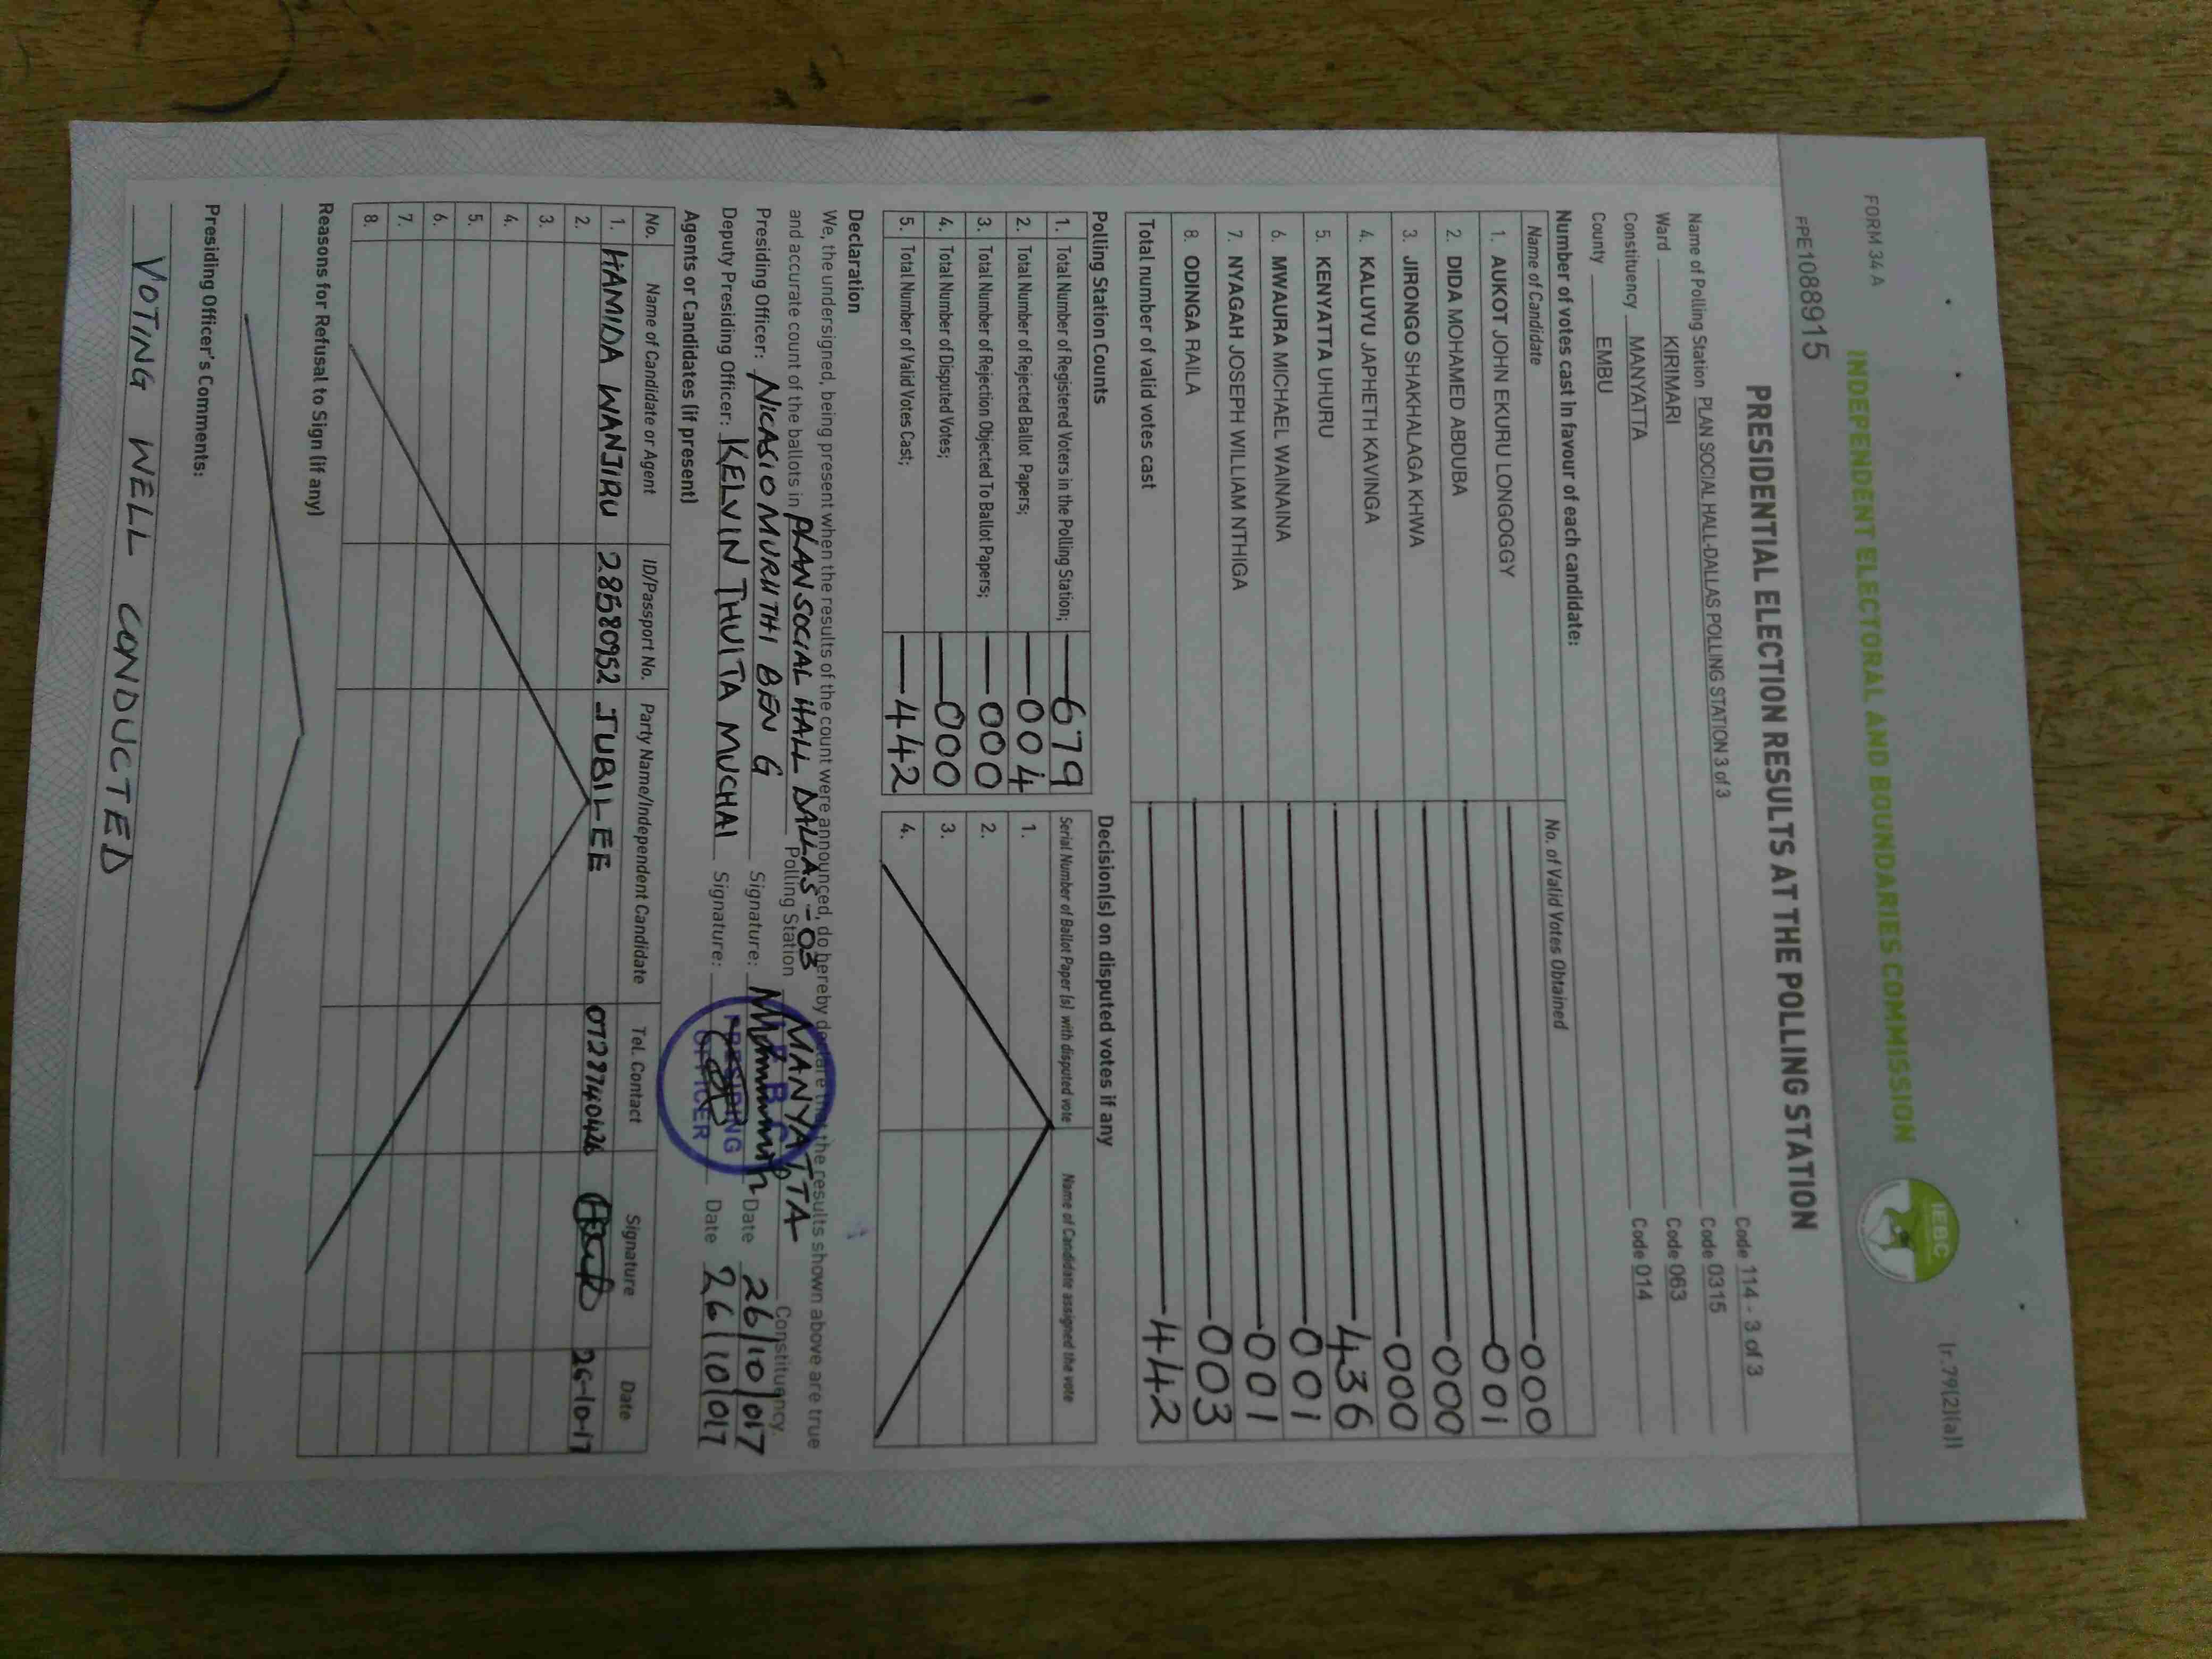 FORM 34 A
(r.79(2)(a))
INDEPENDENT ELECTORAL AND BOUNDARIES COMMISSION
IEBC
FPE1088915
PRESIDENTIAL ELECTION RESULTS AT THE POLLING STATION
Name of Polling Station PLAN SOCIAL HALL-DALLAS POLLING STATION 3 of 3 Code 114 - 3 of 3
Ward KIRIMARI Code 0315
Constituency MANYATTA Code 063
County EMBU Code 014
Number of votes cast in favour of each candidate:
Name of Candidate No. of Valid Votes Obtained
1. AUKOT JOHN EKURU LONGOGGY 000
2. DIDA MOHAMED ABDUBA 001
3. JIRONGO SHAKHALAGA KHWA 000
4. KALUYU JAPHETH KAVINGA 000
5. KENYATTA UHURU 436
6. MWAURA MICHAEL WAINAINA 001
7. NYAGAH JOSEPH WILLIAM NTHIGA 001
8. ODINGA RAILA 003
Total number of valid votes cast 442
Polling Station Counts
1. Total Number of Registered Voters in the Polling Station; 679
2. Total Number of Rejected Ballot Papers; 004
3. Total Number of Rejection Objected To Ballot Papers; 000
4. Total Number of Disputed Votes; 000
5. Total Number of Valid Votes Cast; 442
Decision(s) on disputed votes if any
Serial Number of Ballot Paper (s) with disputed vote Name of Candidate assigned the vote
1.
2.
3.
4.
Declaration
We, the undersigned, being present when the results of the count were announced, do hereby declare that the results shown above are true
and accurate count of the ballots in PLAN SOCIAL HALL DALLAS - 03 Polling Station MANYATTA Constituency.
Presiding Officer: NICASIO MURIITHI BEN G Signature: Date 26/10/017
Deputy Presiding Officer: KELVIN THUITA MUCHAI Signature: Date 26/10/017
PRESIDING
OFFICER
Agents or Candidates (if present)
No. Name of Candidate or Agent ID/Passport No. Party Name/Independent Candidate Tel. Contact Signature Date
1. HAMIDA WANJIRU 28580952 JUBILEE 0727740426 26-10-17
2.
3.
4.
5.
6.
7.
8.
Reasons for Refusal to Sign (if any)
Presiding Officer's Comments:
VOTING WELL CONDUCTED